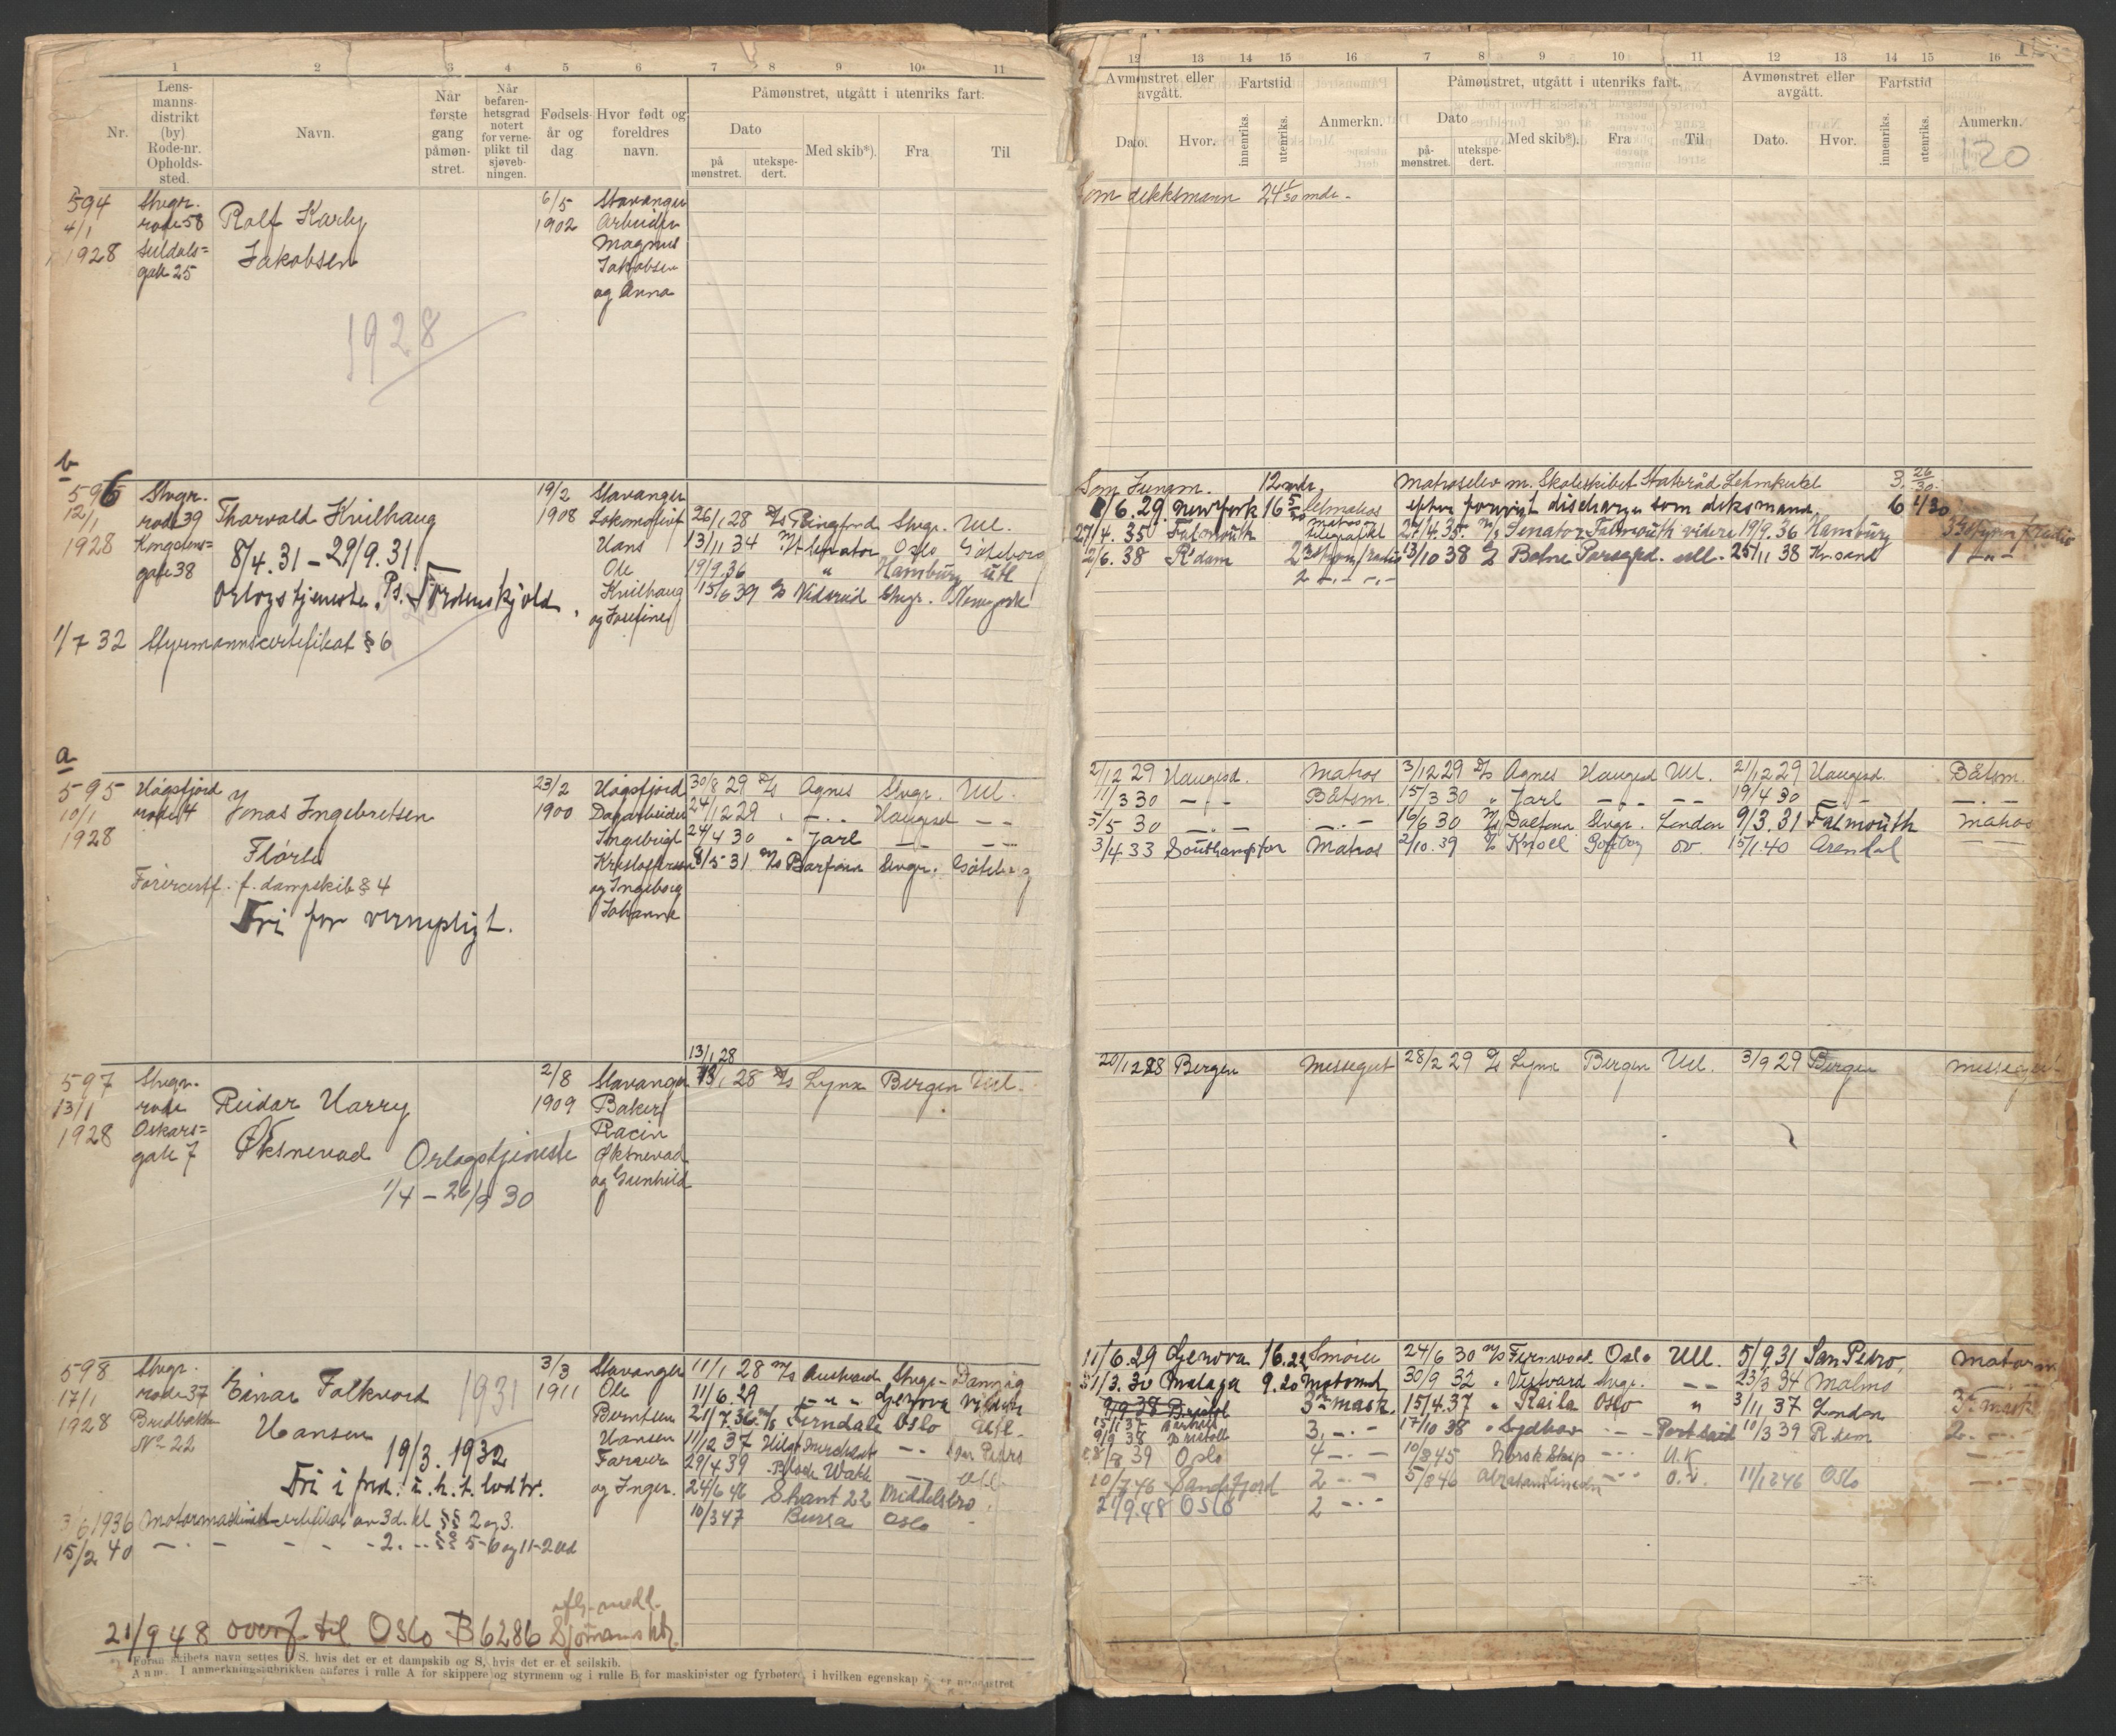 1 2 3 4 5 6 7 8 9 10 11
Nr.
Lens-
manns-
distrikt
(by)
Rode-nr.
Opholds-
sted.
Navn.
Når
første
gang
påmøn-
stret.
Når
befaren-
hetsgrad
notert
for verne-
plikt til
sjøveb-
ningen.
Fødsels-
år og
dag
Hvor født og
foreldres
navn.
Påmønstret, utgått i utenriks fart.
Dato
på
mønstret.
utekspe-
dert.
Med skib*).
Fra
Til
594
4/1
1928
Stvgr.
rode 58
Suldals=
gate 25
Rolf Karly
Jakobsen
1928
6/5
1902
Stavanger
Arbeider
Magnus
Jakobsen
og Anna
b
596
12/1
1928
Stvgr.
rode 39
Kongens=
gate 38
Tharvald Kvilhaug
8/4.31 - 29/9.31
Orlogstjeneste. Ps. Tordenskjold.
1/7 32 Styrmannscertifikat § 6
19/2
1908
Stavanger
Lokomotivf
Hans
Ole
Kvilhaug
og Josefine
26/1 28 D/S Ringfond Stvgr. Utl.
13/11 34 M/T Senator Oslo Göteborg
19/9.36 " Hamburg utl
15/6 39 D/S Vidsund Stvgr. Newyork
a
595
10/1
1928
Høgsfjord
rode 4
Jonas Ingebretsen
Flörli
Førercertf. f. dampskib § 4
Fri for vernepligt.
23/2
1900
Høgsfjord
Dagarbeider
Ingebrigt
Kristoffersen
og Ingeborg
Johanne
30/8 29 D/S Agnes Stvgr. Utl.
24/12 29 " -"- Haugesd - -
24/4 30 " Jarl - - - -
8/5-31 M/S Barfonn Stvgr. Göteborg
597
13/1
1928
Stvgr.
rode
Oskars=
gate 7
Reidar Harry
Øksnevad
Orlogstjeneste
1/4 - 26/9 30
2/8
1909
Stavanger
Baker
Racin
Øksnevad
og Gunhild
13/1 28
13/1 28 D/S Lynx Bergen Utl.
598
17/1
1928
Stvgr.
rode 37
Bredbakken
No 22
Einar Falkvord
Hansen
1931
19/3. 1932
Fri i fred. i. h. t. lodtr.
3/6 1936 Motormaskinistcertifikat av 3d. kl §§ 2 og 3.
15/2 40 - " - - - - 2. - " - §§ 5-6 og 11-2 led
3/3
1911
Stavanger
Ole
Berntsen
Hansen
Farver
og Inger.
11/1 28 M/S Austvard Stvgr. Danzig
11/6.29 - " - Genova videre
21/7.36 M/S Ferndale Oslo Utl.
11/12 37 - -
29/4 39 Black Wath - Utl.
24/6 46 Skant 22 Middelsbro.
10/3 47 Bursa Oslo -
21/9 48 overf. til Oslo B 6286
Foran skibets navn settes D S. hvis det er et dampskib og S, hvis det er et seilskib.
Anm. I anmerkningsrubrikken anføres i rulle A for skippere og styrmenn og i rulle B for maskinister og fyrbøtere, i hvilken egenskap de er mønstret
12 13 14 15 16 7 8 9 10 11 12 13 14 15 16
Avmønstret eller
avgått.
Fartstid
Dato.
Hvor.
innenriks.
utenriks.
Anmerkn.
Påmønstret, utgått i utenriks fart.
Dato
på-
mønstret.
utekspe-
dert.
Med skib*).
Fra
Til
Avmønstret eller
avgått.
Fartstid
Dato.
Hvor.
innenriks.
utenriks.
Anmerkn.
120
Som dekksmann 24 1/30 mdr -
Som Jungm. 12 mdr. Matroselev m. Skoleskibet Statsråd Lehmkuhl 3. 26/30
1/6.29. Newyork 16 5/30 Lettmatros efter forevist discharge som dekksmand. 6 4/30
27/4. 35 Falmouth 27/4.35. M/S Senator Falmouth videre 19/9.36 Hamburg
2/6. 38 R'dam 13/10 38 Belne Porsgrd. utl. 25/11 38 Kr.sand
2 - " - " -
2/12 29 Haugesd. Matros 3/12 29 D/S Agnes Haugesd Utl. 21/12 29 Haugesd. Båtsm.
11/3 30 - " - Båtsm. 15/3 30 " Jarl - " - - - 19/4 30 - " - - " -
5/5 30 - " - - " - 16/6 30 M/S Dalfonn Stvgr. London 9/3.31 Falmouth Matros
3/4.33 Southampton Matros 2/10.39 D/S Knoel Gøtbog ov. 15/1.40 Arendal
20/12 28 Bergen Messegut 28/2 29 D/S Lynx Bergen Utl. 3/9 29 Bergen messegut
11/6.29 Genova 16.22 Smører 24/6 30 M/S Fernwood Oslo Utl. 5/9.31 San Pedro, Motorm.
31/3. 30 Malaga 9.20 Motormd 30/9 32 " Vestvard Stvgr. - - 23/3 34 Malmö
9/9 38 Bristol 3m mask. 15/4.37 " Reila Oslo " 3/11 37 London 3m mask
9/9 38 Bristol 3. - " - 17/10 38 " Sydhav - " - Port Said 10/3 39 R.dam 2. - " -
8/8 39 Oslo 4 - " - 10/8 45 Norsk Skip - " - U.K
10/7.46 Sandefjord 2 - " - 5/8 46 Abraham Lincoln - " - o.v. 11/12 46 Oslo - " -
21/9.48 Oslo 2 - " -